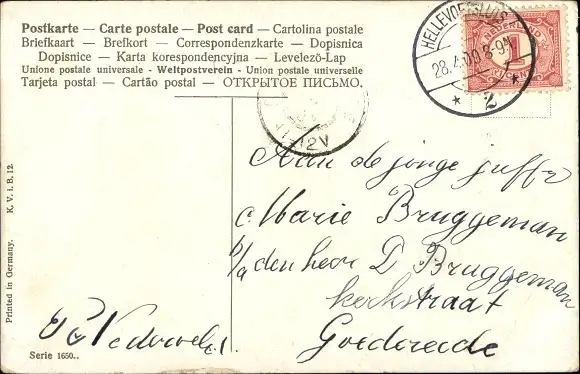 Postkarte — Carte postale — Post card — Cartolina postale
Briefkaart — Brefkort — Correspondenzkarte — Dopisnica
Dopisnice — Karta korespondencyjna — Levelező-Lap
Unione postale universale - Weltpostverein - Union postale universelle
Tarjeta postal — Cartão postal — ОТКРЫТОЕ ПИСЬМО.
HELLEVOETSLUIS
NEDERLAND
1
CENT
2
Aan de jonge juffr
Marie Bruggeman
p/a den heer D Bruggeman
kerkstraat
Goedereede
Serie 1650..
Printed in Germany. K. V. i. B. 12.